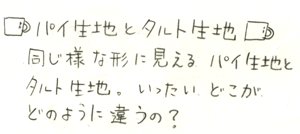 パイ生地とタルト生地
同じ様な形に見える パイ生地と
タルト生地。いったい どこが
どのように 違うの？